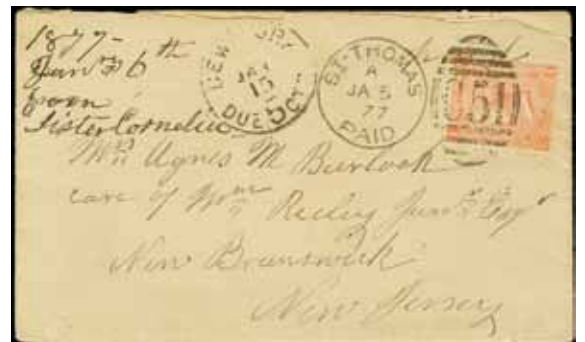 1877-
Jany 6th
from
Sister Cornelia
NEW YORK
JAN
15
DUE 5 CTS
ST. THOMAS
A
JA 5
77
PAID
C51
Mrs Agnes M Burlock
care of Wm Reiley Junr Esqr
New Brunswick
New Jersey